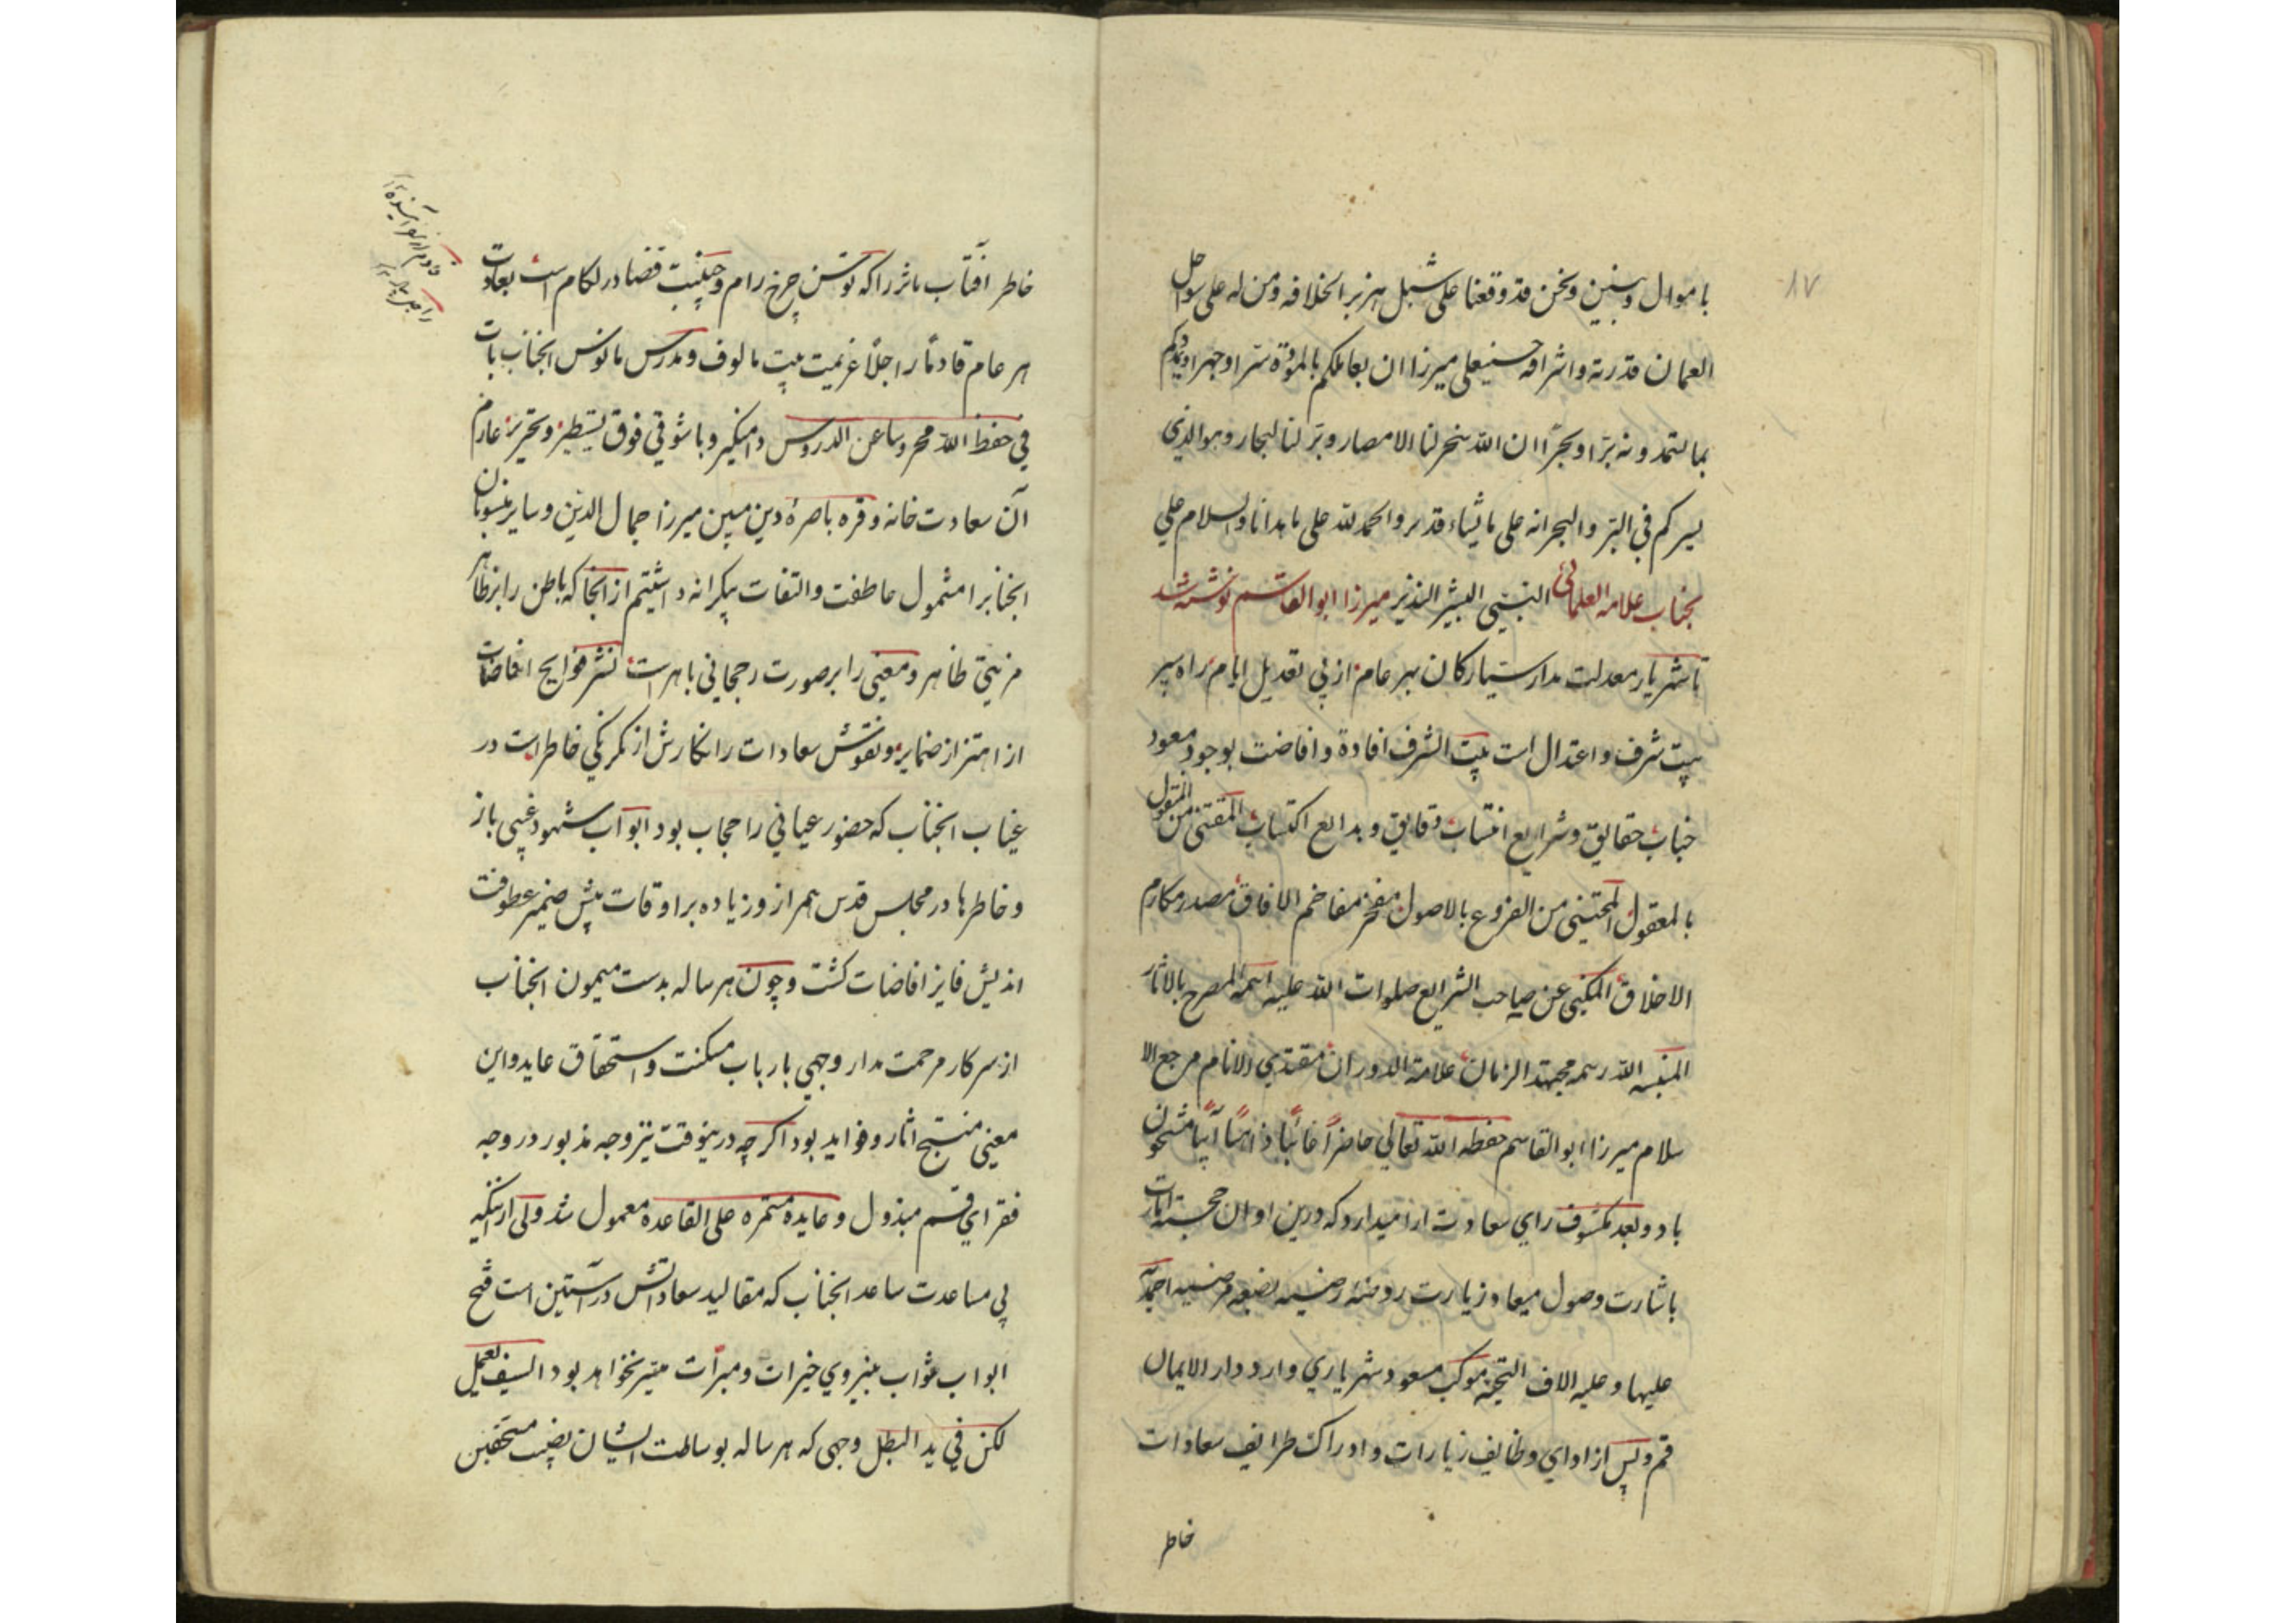 ۸۷
باموال وبنین ونحن قد وقعنا علی شبل هزبر الخلافه ومن له علی سواحل
العمان قدرته واشرافه حسینعلی میرزا ان یعاملکم بالموده سرا وجهرا ویمدکم
بما لتمدونه برا وبحرا ان الله سخر لنا الامصار وبر لنا البحار وهو الذی
یسیرکم فی البر والبحر انه علی ما یشاء قدیر والحمد لله علی ما هدانا والسلام علی
النبی البشیر النذیر بجناب علامه العلمائی میرزا ابوالقاسم نوشته شد
تا شهریار معدلت مدار سیارکان هر عام از پی تعدیل ایام راه سپر
بیت شرف و اعتدال است بیت الشرف افادة وافاضت بوجود مسعود
جناب حقایق وشرایع انتساب دقایق وبدایع اکتساب المقتنی من المنقول
بالمعقول المجتنی من الفروع بالاصول مفخر مفاخم الافاق مصدر مکارم
الاخلاق المکنی عن صاحب الشرایع صلوات الله علیه اسمه المصرح بالاثار
الله رسمه مجتهد الزمان علامة الدوران مقتدی الانام مرجع الا
سلام میرزا ابوالقاسم حفظه الله تعالی حاضرا غائبا ذاهبا آیبا مشحون
باد وبعد مکشوف رای سعادت ارا میدارد که درین اوان خجسته آیات
باشارت وصول میعاد زیارت روضه رضیه بضعه مرضیه احمدیه
علیها وعلیه الاف التحیه موکب مسعود شهریاری وارد دار الایمان
قم وپس از ادای وظایف زیارات وادراک طرایف سعادات
خاطر
خاطر افتاب ماثر را که توسن چرخ رام وجنیبت قضا در لکام است بعادت
هر عام قادما راجلا عزیمت بیت مالوف ومدرس مانوس انجناب بات
فی حفظ الله محروسا عن الدروس دامنکیر وبا شوقی فوق تسطیر وتحریر عازم
آن سعادت خانه وقره باصرهٔ دین مبین میرزا جمال الدین وسایر منسوبان
انجناب را مشمول عاطفت والتفات بیکرانه داشتیم از انجا که باطن را بر ظاهر
مزیتی ظاهر ومعنی را بر صورت رجحانی باهر است نشر فوایح افاضات
از اهتزاز ضمایر ونقوش سعادات را نکارش از یکرنکی خاطر است در
غیاب انجناب که حضور عیانی را حجاب بود ابواب شهود غیبی باز
وخاطر ها در مجلس قدس همراز وزیاده بر اوقات پیش ضمیر عطوفت
اندیش فایز افاضات کشت وچون هر ساله بدست میمون انجناب
از سرکار مرحمت مدار وجهی بارباب مسکنت واستحقاق عاید واین
معنی منتج اثار وفواید بود اکرچه درینوقت نیز وجه مذبور در وجه
فقرای قم مبذول وعایده مستمره علی القاعده معمول شد ولی از انکه
بی مساعدت ساعد انجناب که مقالید سعاداتش در آستین است فتح
ابواب ثواب بنیروی خیرات ومبرات میسر نخواهد بود السیف یعمل
لکن فی ید البطل وجهی که هر ساله بوساطت ایشان نصیب مستحقین